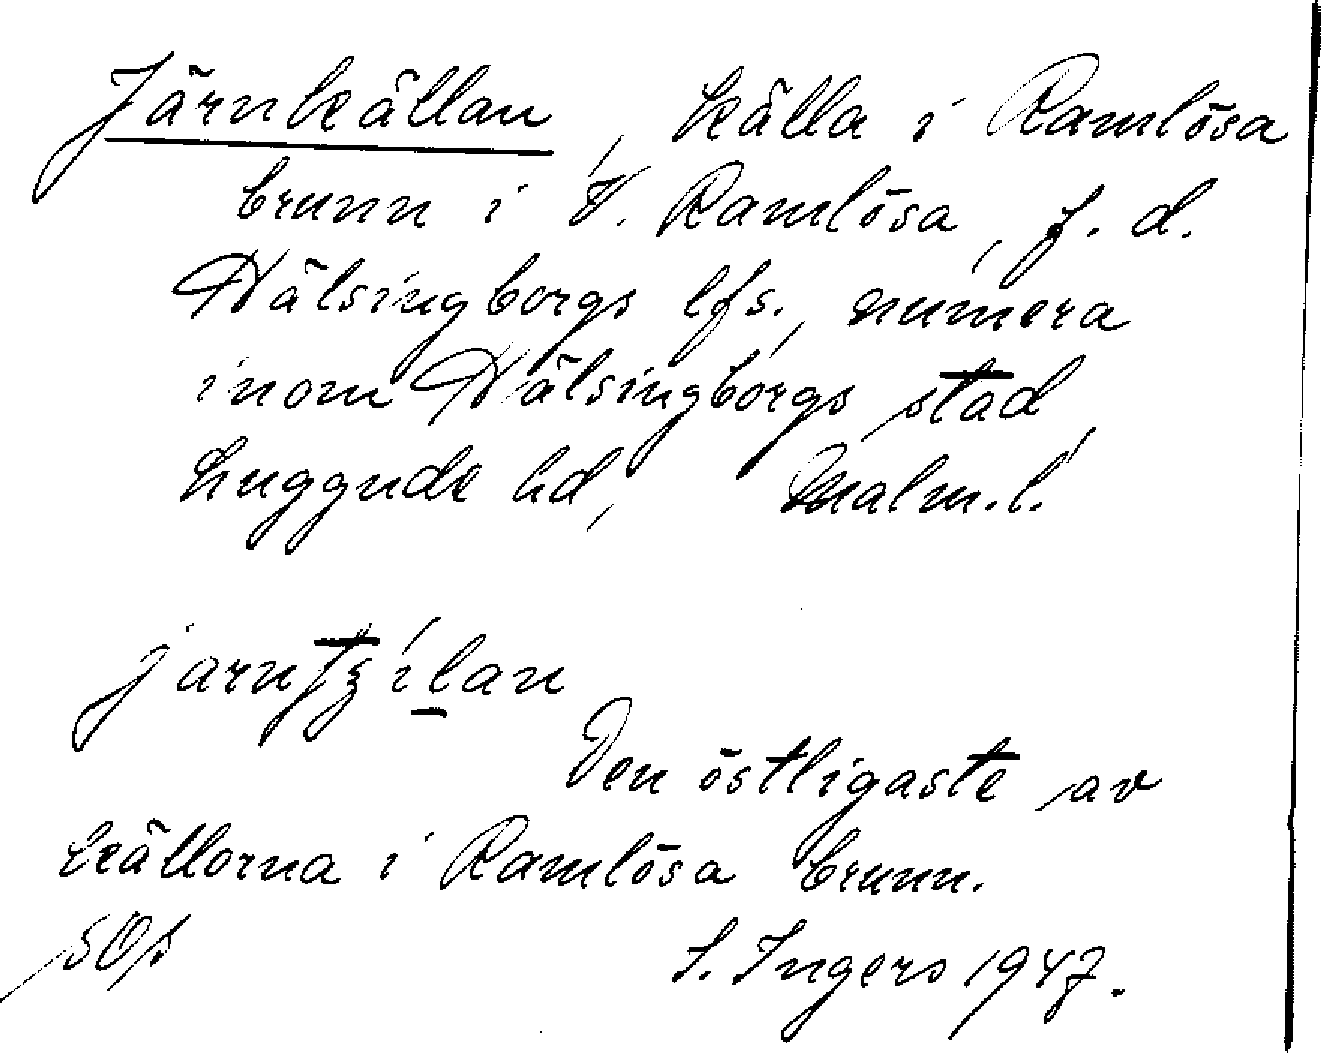 Järnkällan, källa i Ramlösa
brunn i V. Ramlösa, f. d.
Hälsingborgs lfs., numera
inom Hälsingborgs stad,
Luggude hd, Malm. l.
Den östligaste av
källorna i Ramlösa brunn.
SOp
I. Ingers 1947.